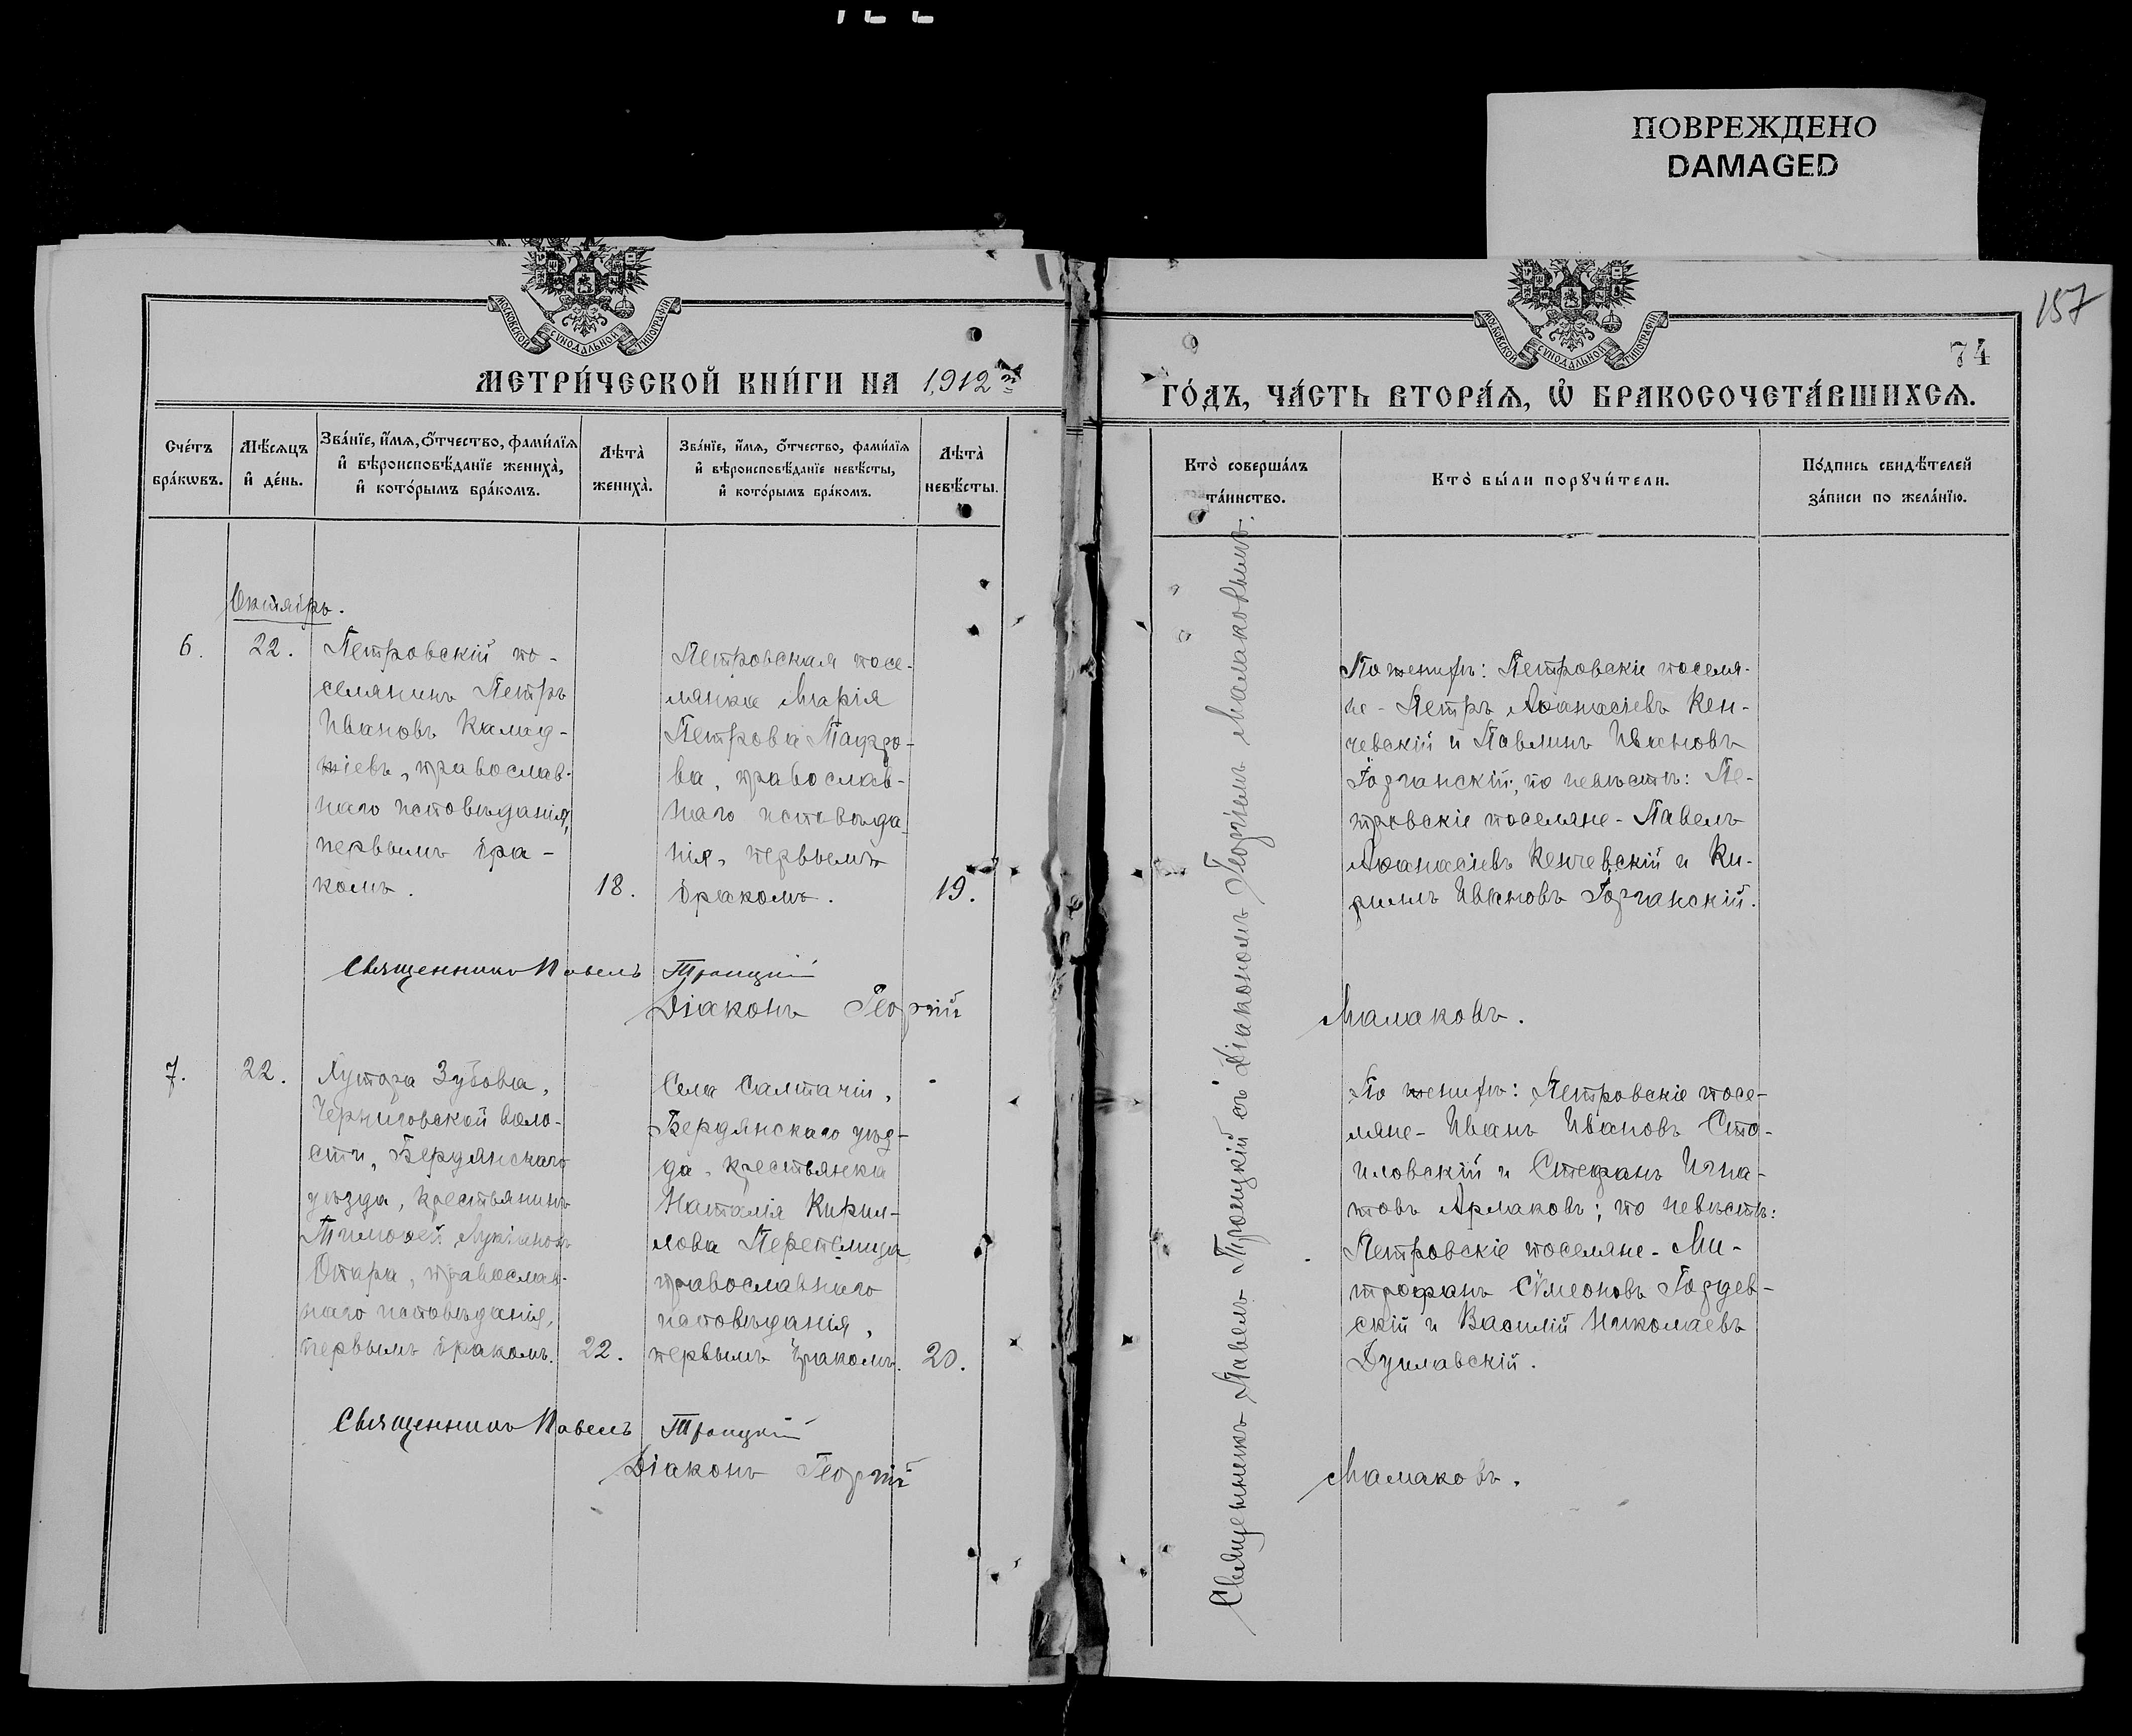 ПОВРЕЖДЕНО
DAMAGED
157
74
МОСКОВСКОЙ СѴНОДАЛЬНОЙ ТИПОГРАФІИ
МОСКОВСКОЙ СѴНОДАЛЬНОЙ ТИПОГРАФІИ
МЕТРИ́ЧЕСКОЙ КНИ́ГИ НА 1912й
ГО́ДЪ, ЧА́СТЬ ВТОРА́Ѧ, Ѽ БРАКОСОЧЕТА́ВШИХСѦ.
Сче́тъ
бра́кѡвъ.
Мѣ́сѧцъ
и҆ де́нь.
Зва́нїе, и҆́мѧ, ѻ҆́тчество, фами́лїѧ
и҆ вѣроисповѣ́данїе жениха̀,
и҆ кото́рымъ бра́комъ.
Лѣта̀
жениха̀.
Зва́нїе, и҆́мѧ, ѻ҆́тчество, фами́лїѧ
и҆ вѣроисповѣ́данїе невѣ́сты,
и҆ кото́рымъ бра́комъ.
Лѣта̀
невѣ́сты.
Кто̀ соверша́лъ
та́инство.
Кто̀ бы́ли порꙋчи́тели.
По́дпись свидѣ́телей
за́писи по жела́нїю.
Октябрь.
6.
22.
Петровскій по-
селянинъ Петръ
Ивановъ Калид-
жіевъ, православ-
наго исповѣданія,
первымъ бра-
комъ.
18.
Петровская посе-
лянка Марія
Петрова
ва, православ-
наго исповѣда-
нія, первымъ
бракомъ.
19.
По женихѣ: Петровскіе поселя-
не - Петръ Аѳанасіевъ Кен-
чевскій и Павлинъ Ивановъ
Гозганскій, по невѣстѣ: Пе-
тровскіе поселяне - Павелъ
Аѳанасіевъ Кенчевскій и Ки-
риллъ Ивановъ Гозганскій.
Священникъ Павелъ Троицкій
Діаконъ Георгій Малаковъ.
7.
22.
Хутора Зубова,
Черниговской воло-
сти, Бердянскаго
уѣзда, крестьянинъ
Тимоѳей Лукіановъ
Отара, православ-
наго исповѣданія,
первымъ бракомъ.
22.
Села Салтачіи,
Бердянскаго уѣз-
да, крестьянка
Наталія Кирил-
лова Перепелица
православнаго
исповѣданія,
первымъ бракомъ.
20.
По женихѣ: Петровскіе посе-
ляне - Иванъ Ивановъ Сто-
иловскій и Стефанъ Игна-
товъ Арлаковъ; по невѣстѣ:
Петровскіе поселяне - Ми-
трофанъ Сѵмеоновъ Гоздев-
скій и Василій Николаевъ
Дуилавскій.
Священникъ Павелъ Троицкій
Діаконъ Георгій Малаковъ.
Священникъ Павелъ Троицкій съ Діакономъ Георгіемъ Малаковымъ.